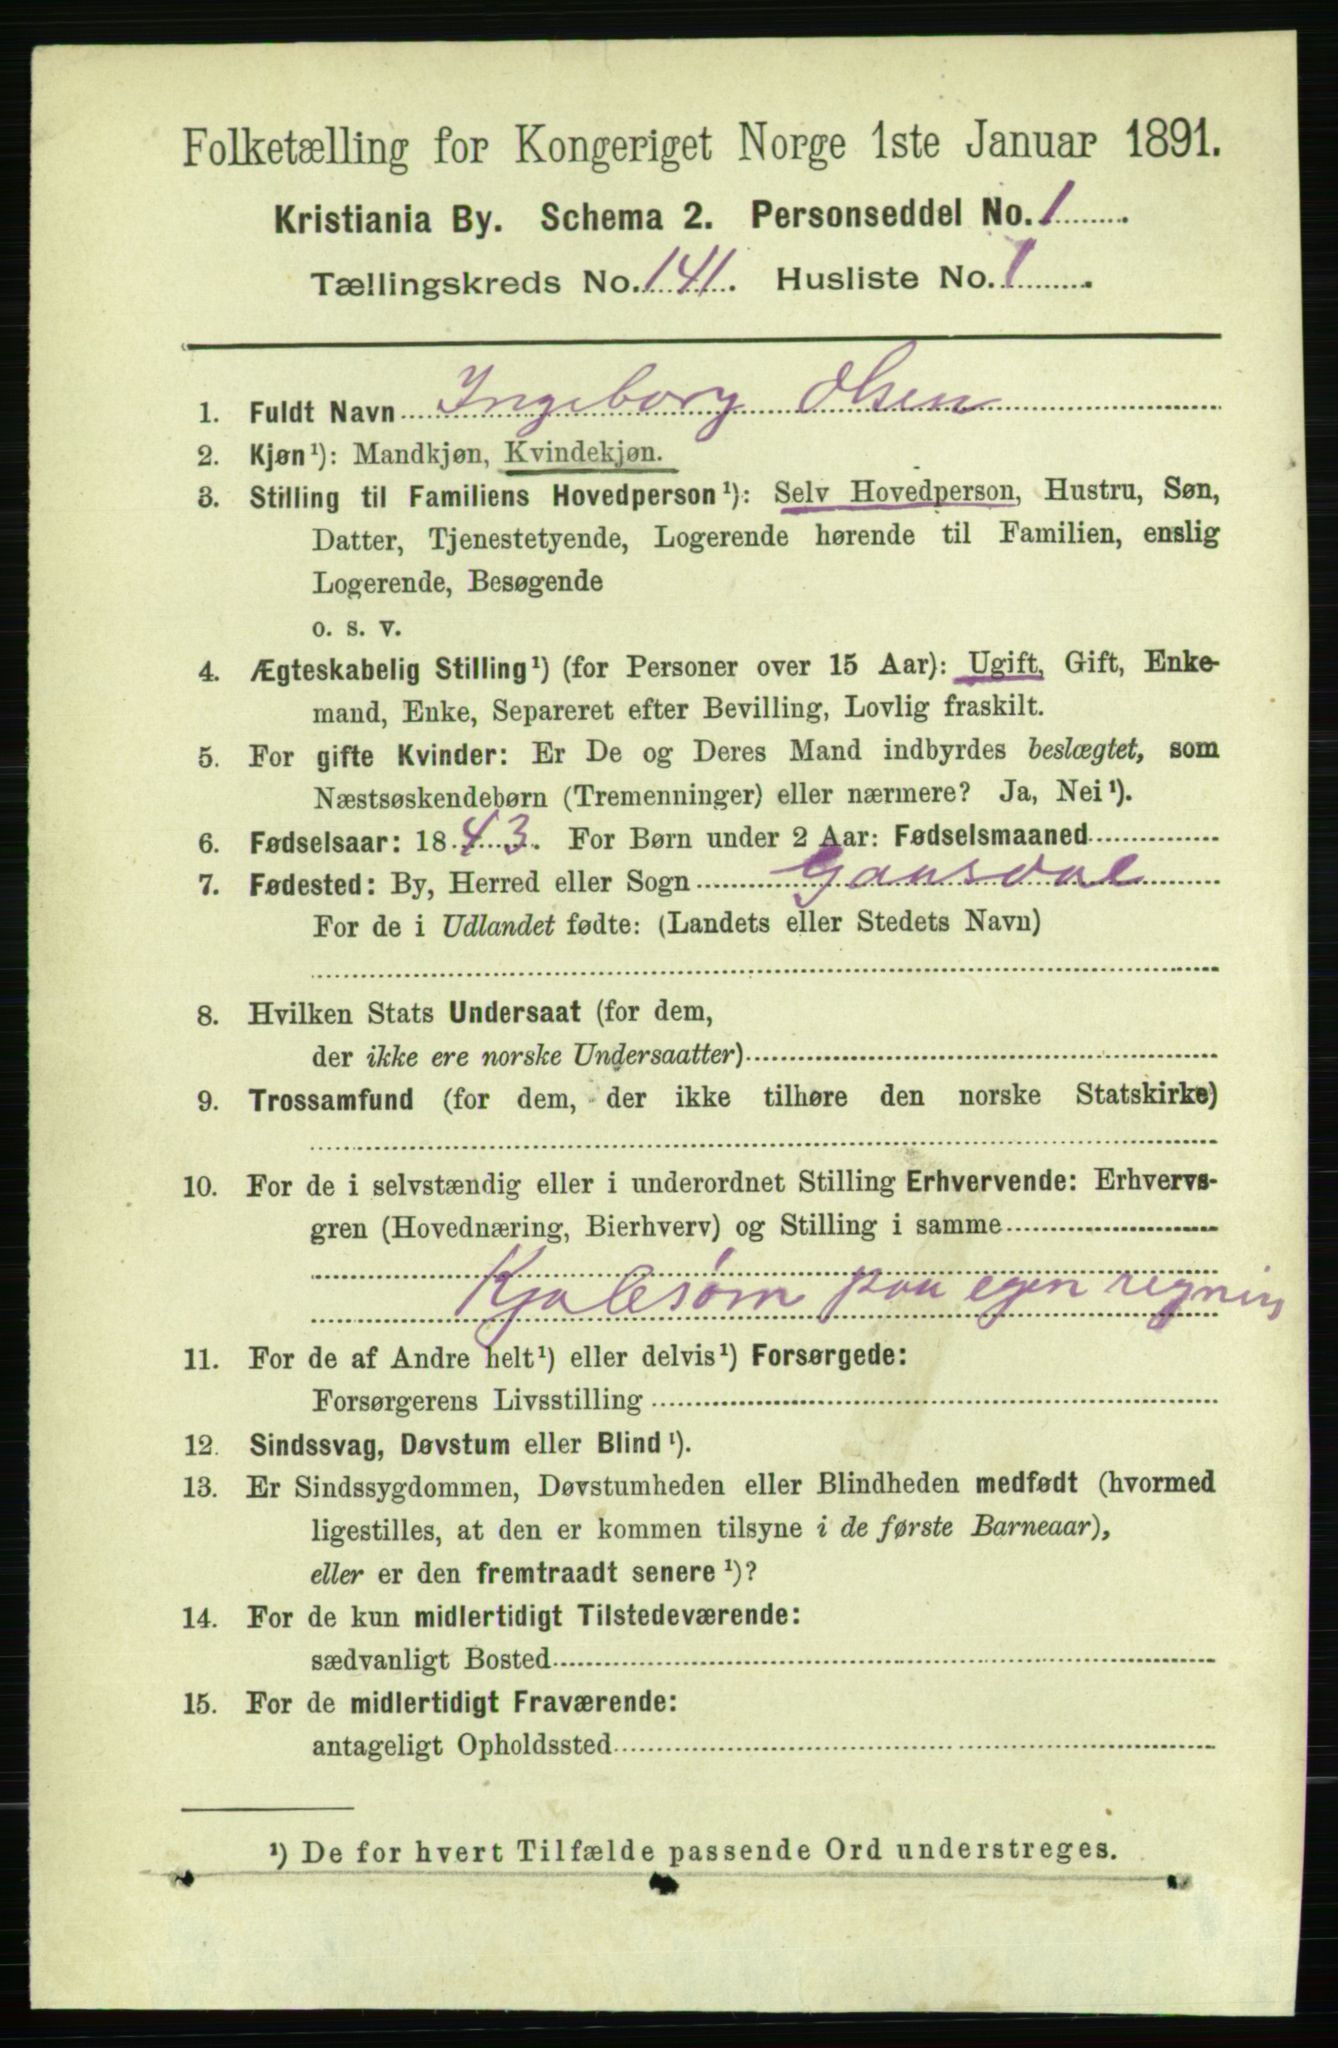 Folketælling for Kongeriget Norge 1ste Januar 1891.
Kristiania By. Schema 2. Personseddel No. 1
Tællingskreds No. 141. Husliste No. 1.
1. Fuldt Navn Ingeborg Olsen
2. Kjøn¹): Mandkjøn, Kvindekjøn.
3. Stilling til Familiens Hovedperson¹): Selv Hovedperson, Hustru, Søn,
Datter, Tjenestetyende, Logerende hørende til Familien, enslig
Logerende, Besøgende
o. s. v.
4. Ægteskabelig Stilling¹) (for Personer over 15 Aar): Ugift, Gift, Enke-
mand, Enke, Separeret efter Bevilling, Lovlig fraskilt.
5. For gifte Kvinder: Er De og Deres Mand indbyrdes beslægtet, som
Næstsøskendebørn (Tremenninger) eller nærmere? Ja, Nei¹).
6. Fødselsaar: 1843. For Børn under 2 Aar: Fødselsmaaned
7. Fødested: By, Herred eller Sogn Gausdal
For de i Udlandet fødte: (Landets eller Stedets Navn)
8. Hvilken Stats Undersaat (for dem,
der ikke ere norske Undersaatter)
9. Trossamfund (for dem, der ikke tilhøre den norske Statskirke)
10. For de i selvstændig eller i underordnet Stilling Erhvervende: Erhvervs-
gren (Hovednæring, Bierhverv) og Stilling i samme
Kjolesøm paa egen regning
11. For de af Andre helt¹) eller delvis¹) Forsørgede:
Forsørgerens Livsstilling
12. Sindssvag, Døvstum eller Blind¹).
13. Er Sindssygdommen, Døvstumheden eller Blindheden medfødt (hvormed
ligestilles, at den er kommen tilsyne i de første Barneaar),
eller er den fremtraadt senere¹)?
14. For de kun midlertidigt Tilstedeværende:
sædvanligt Bosted
15. For de midlertidigt Fraværende:
antageligt Opholdssted
¹) De for hvert Tilfælde passende Ord understreges.